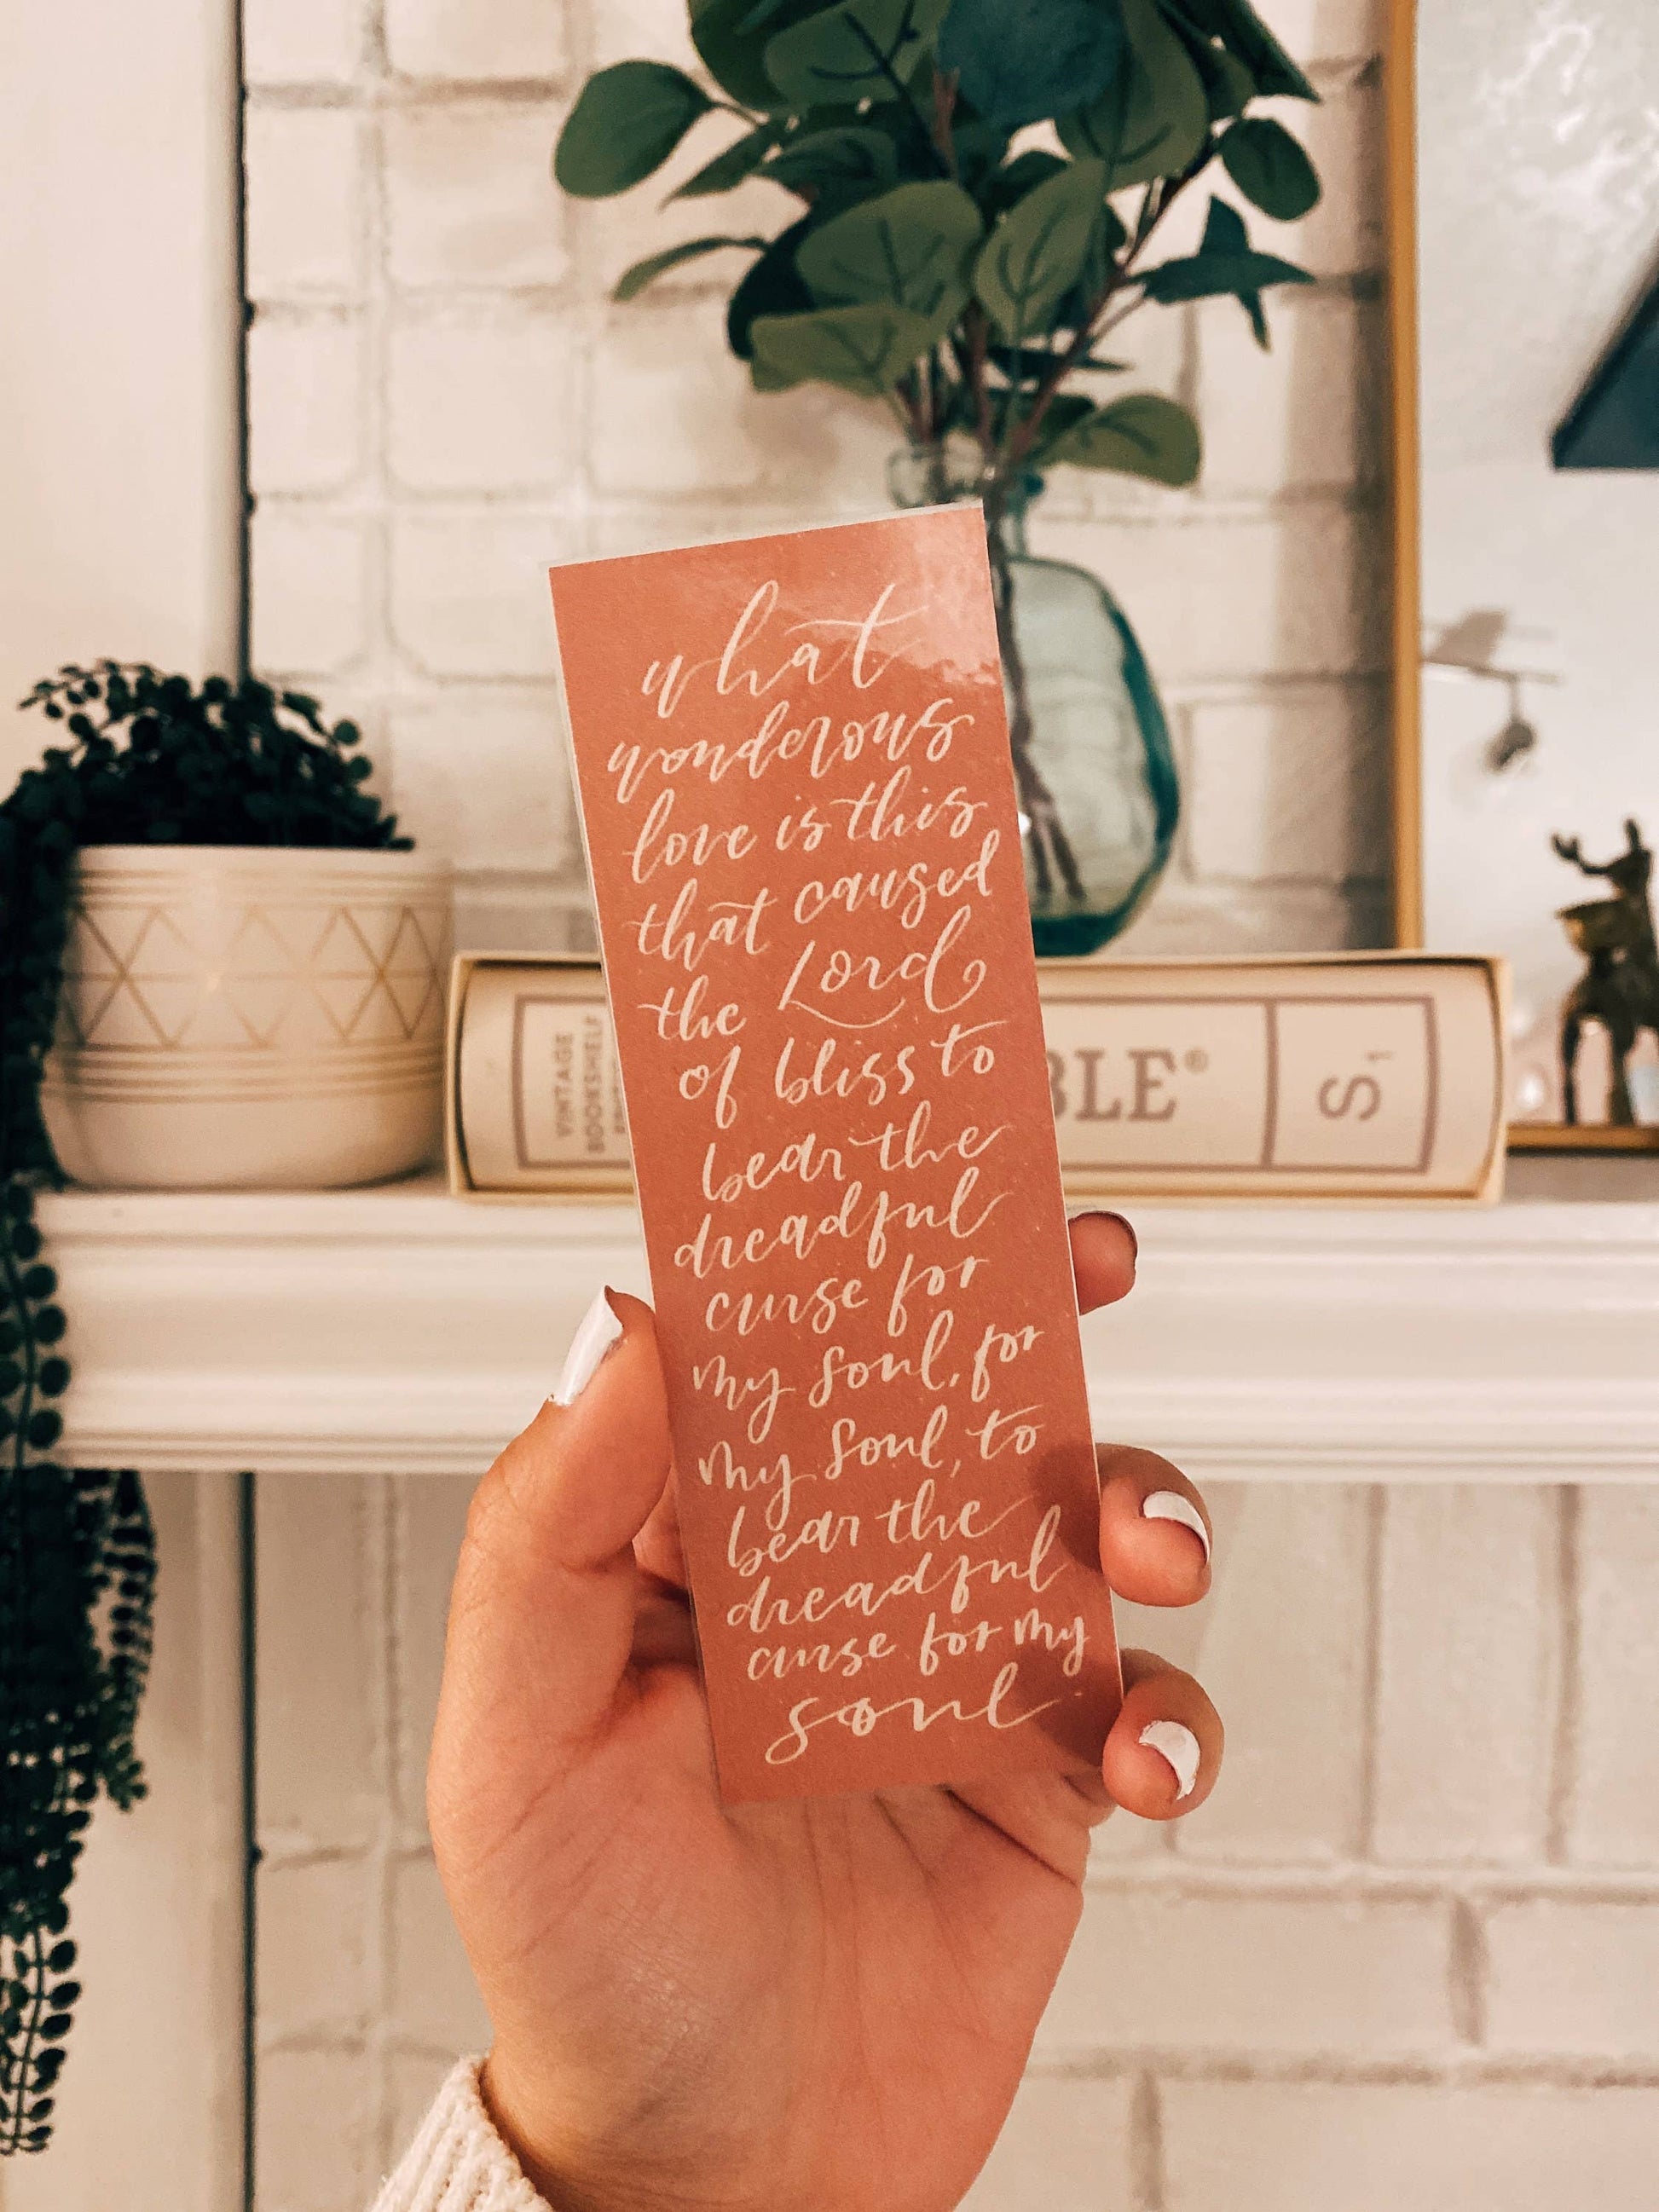 what
wonderous
love is this
that caused
the Lord
of bliss to
bear the
dreadful
curse for
my soul, for
my soul, to
bear the
dreadful
curse for my
soul
VINTAGE
BOOKSHELF
BLE®
S1